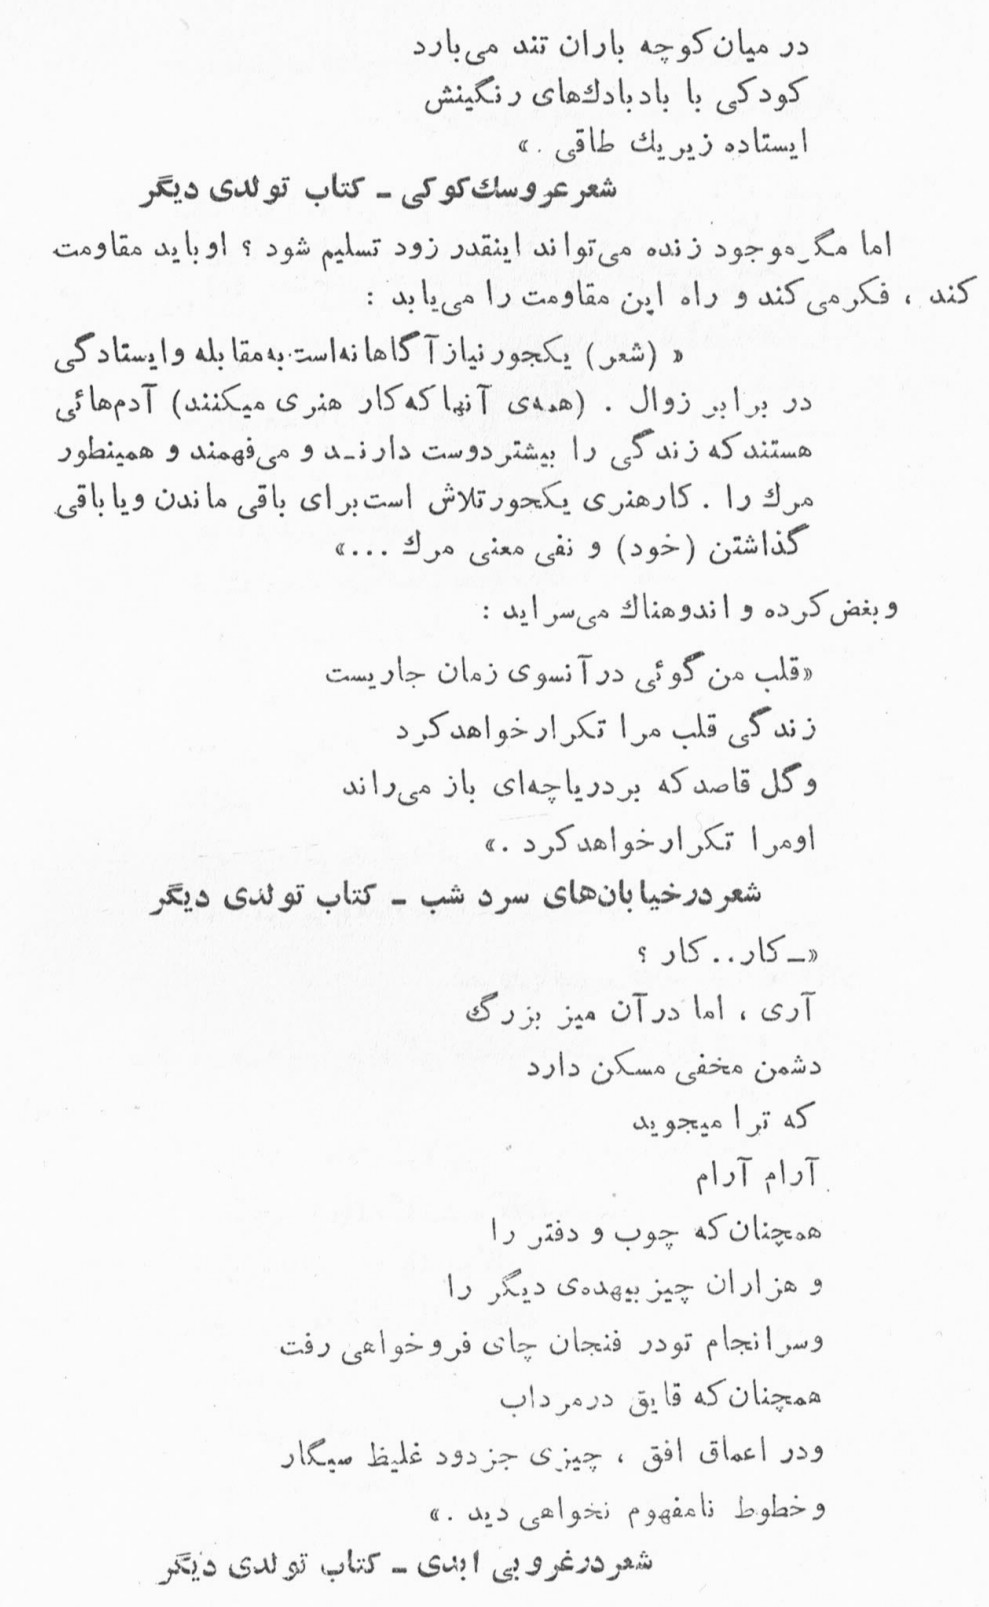 در میان کوچه باران تند می‌بارد
کودکی با بادبادك‌های رنگینش
ایستاده زیر یك طاقی .»
شعر عروسك کوکی ـ کتاب تولدی دیگر
اما مگر موجود زنده می‌تواند اینقدر زود تسلیم شود ؟ او باید مقاومت
کند ، فکر می‌کند و راه این مقاومت را می‌یابد :
« (شعر) یکجور نیاز آگاهانه است به مقابله و ایستادگی
در برابر زوال . (همه‌ی آنها که کار هنری میکنند) آدم‌هائی
هستند که زندگی را بیشتر دوست دارنـد و می‌فهمند و همینطور
مرك را . کار هنری یکجور تلاش است برای باقی ماندن و یا باقی
گذاشتن (خود) و نفی معنی مرك ...»
و بغض کرده و اندوهناك می‌سراید :
«قلب من گوئی در آنسوی زمان جاریست
زندگی قلب مرا تکرار خواهد کرد
و گل قاصد که بر دریاچه‌ای باز می‌راند
او مرا تکرار خواهد کرد .»
شعر در خیابان‌های سرد شب ـ کتاب تولدی دیگر
«ـ کار.. کار ؟
آری ، اما در آن میز بزرگ
دشمن مخفی مسکن دارد
که ترا میجوید
آرام آرام
همچنان که چوب و دفتر را
و هزاران چیز بیهده‌ی دیگر را
و سرانجام تو در فنجان چای فرو خواهی رفت
همچنان که قایق در مرداب
و در اعماق افق ، چیزی جز دود غلیظ سیگار
و خطوط نامفهوم نخواهی دید .»
شعر در غروبی ابدی ـ کتاب تولدی دیگر